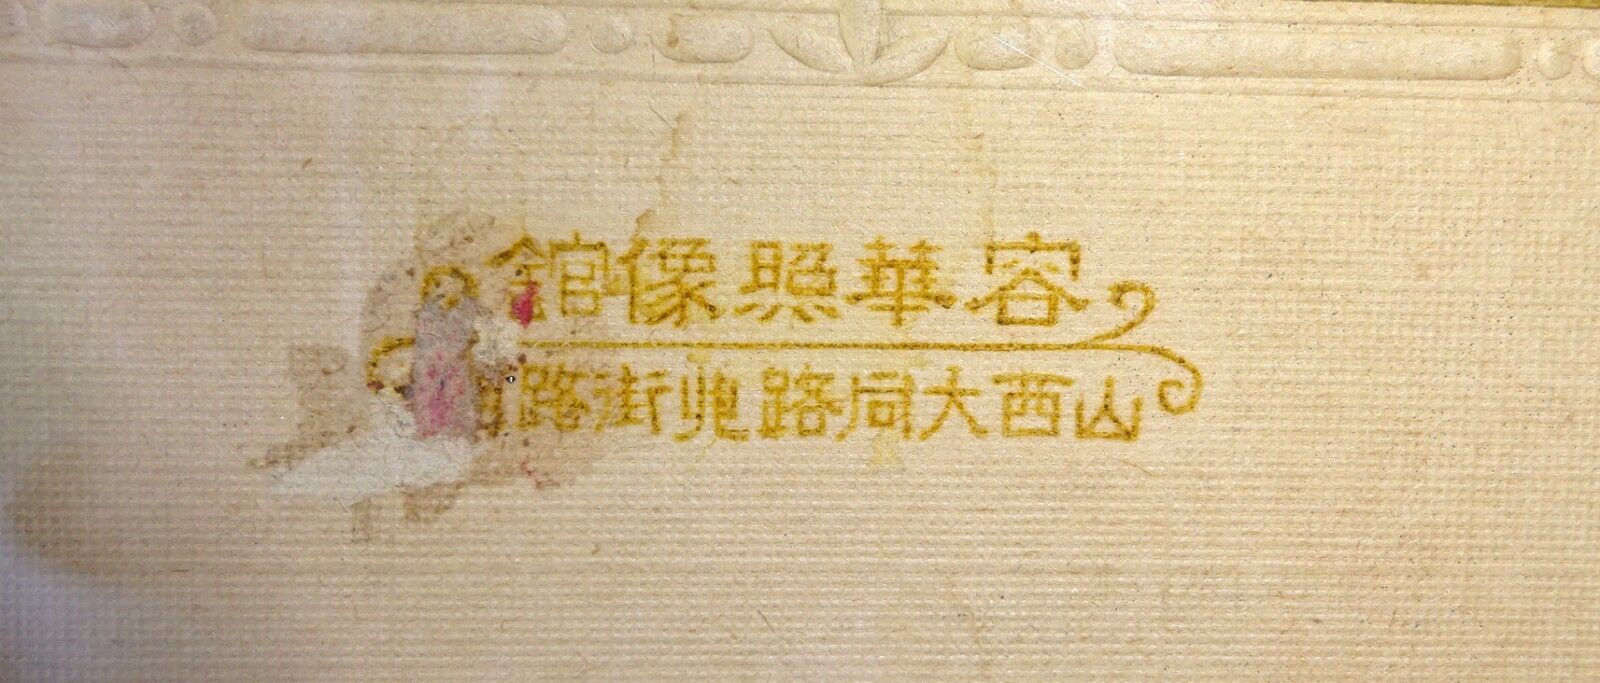 容華照像館
山西大同路北街路